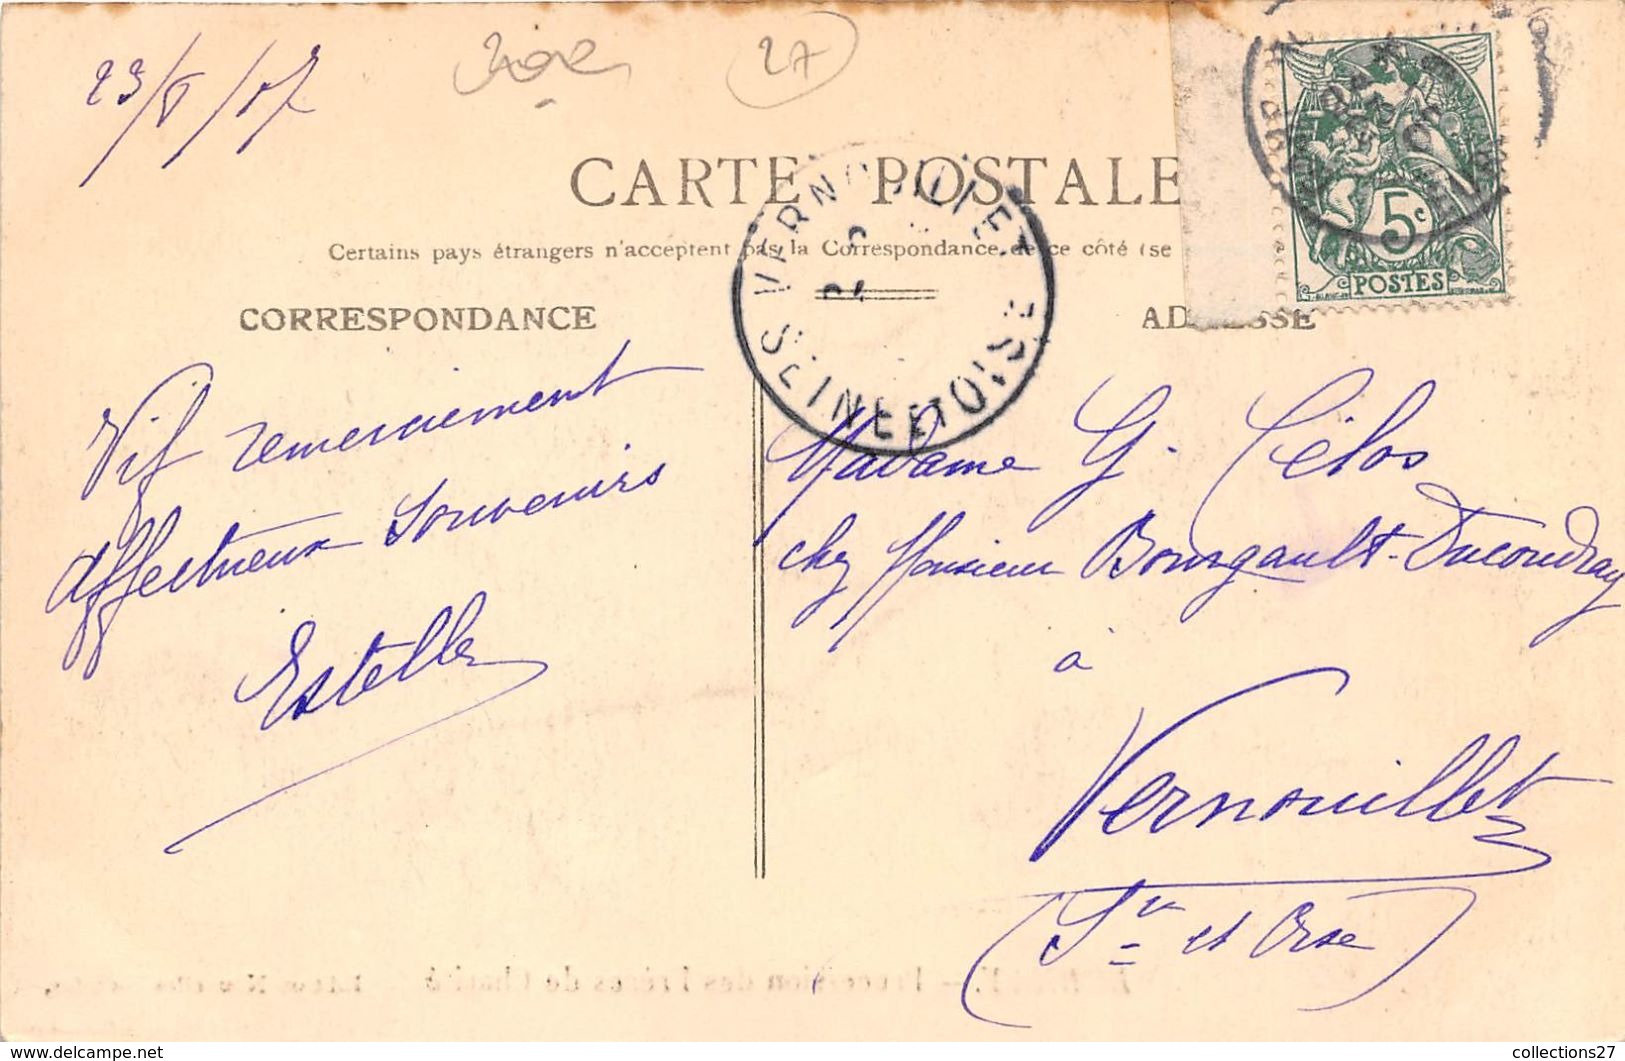 23/8/07
27
CARTE POSTALE
Certains pays étrangers n'acceptent pas la Correspondance de ce côté (se
CORRESPONDANCE
ADRESSE
VERNOUILLET
SEINE ET OISE
5c
POSTES
Vif remerciement
affectueux souvenirs
Estelle
Madame G. Célos
chez Monsieur Bourgault-Ducoudray
à
Vernouillet
(S. et Oise)
collections27